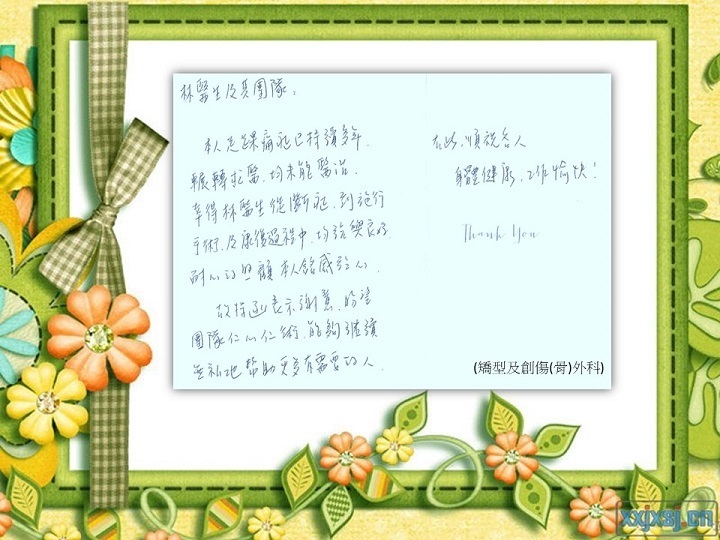 林醫生及其團隊：
本人足踝痛症已持續多年，
輾轉求醫，均未能醫治。
幸得林醫生從斷症，到施行
手術，及康復過程中，均給與良好
耐心的照顧，本人銘感於心。
故特函表示謝意，盼望
團隊仁心仁術，能夠繼續
無私地幫助更多有需要的人。
在此，順祝各人
身體健康，工作愉快！
Thank You
(矯型及創傷(骨)外科)
xxjxsj.cn